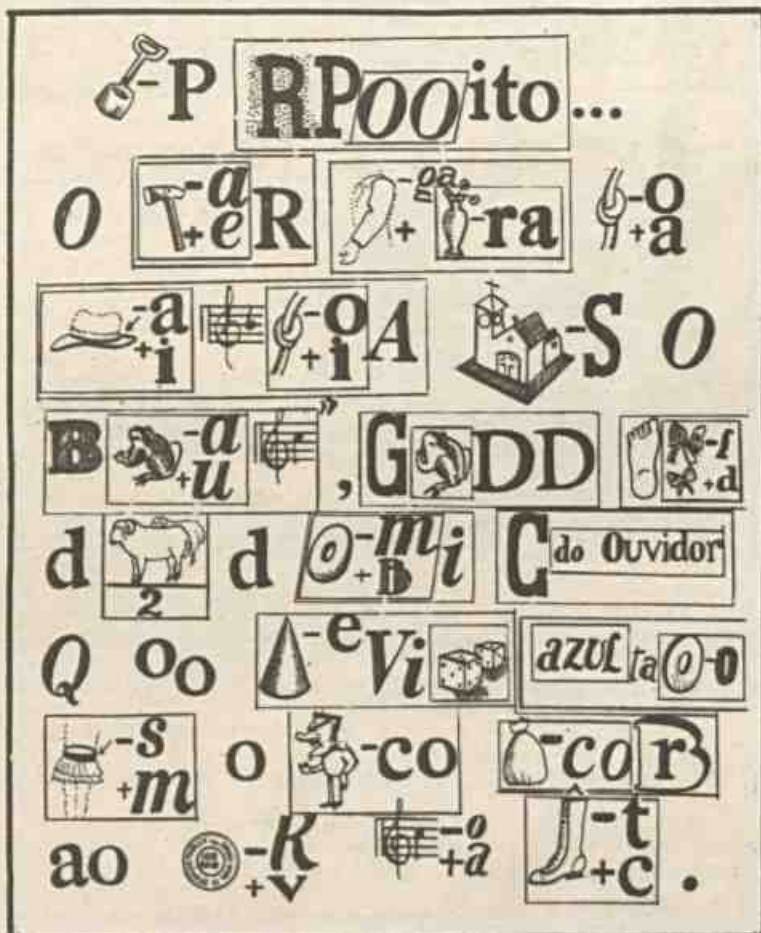 -P RPOOito...
O -a +e R -ga. + -ra -o +a
-a +i -o +i A -S O
B -a +u ", G DD -f +d
d 2 d O -m +B i C do Ouvidor
Q oo -e Vi azul ta O -o
-s +m o -co -co r B
ao -R +v -o +a -t +c .